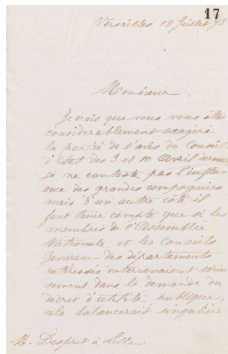 17
Versailles 18 Juillet 73
Monsieur,
Je crois que vous vous êtes
considérablement exagéré
la portée de l'avis du Conseil
d'Etat des 3 et 10 Avril dernier
je ne conteste pas l'influ-
ence des grandes compagnies
mais d'un autre côté il
faut tenir compte que si les
membres de l'Assemblée
Nationale et les Conseils
Généraux des départements
intéressés intervenaient
dans la demande du
décret d'utilité publique,
cela balancerait
M. Despret à Lille